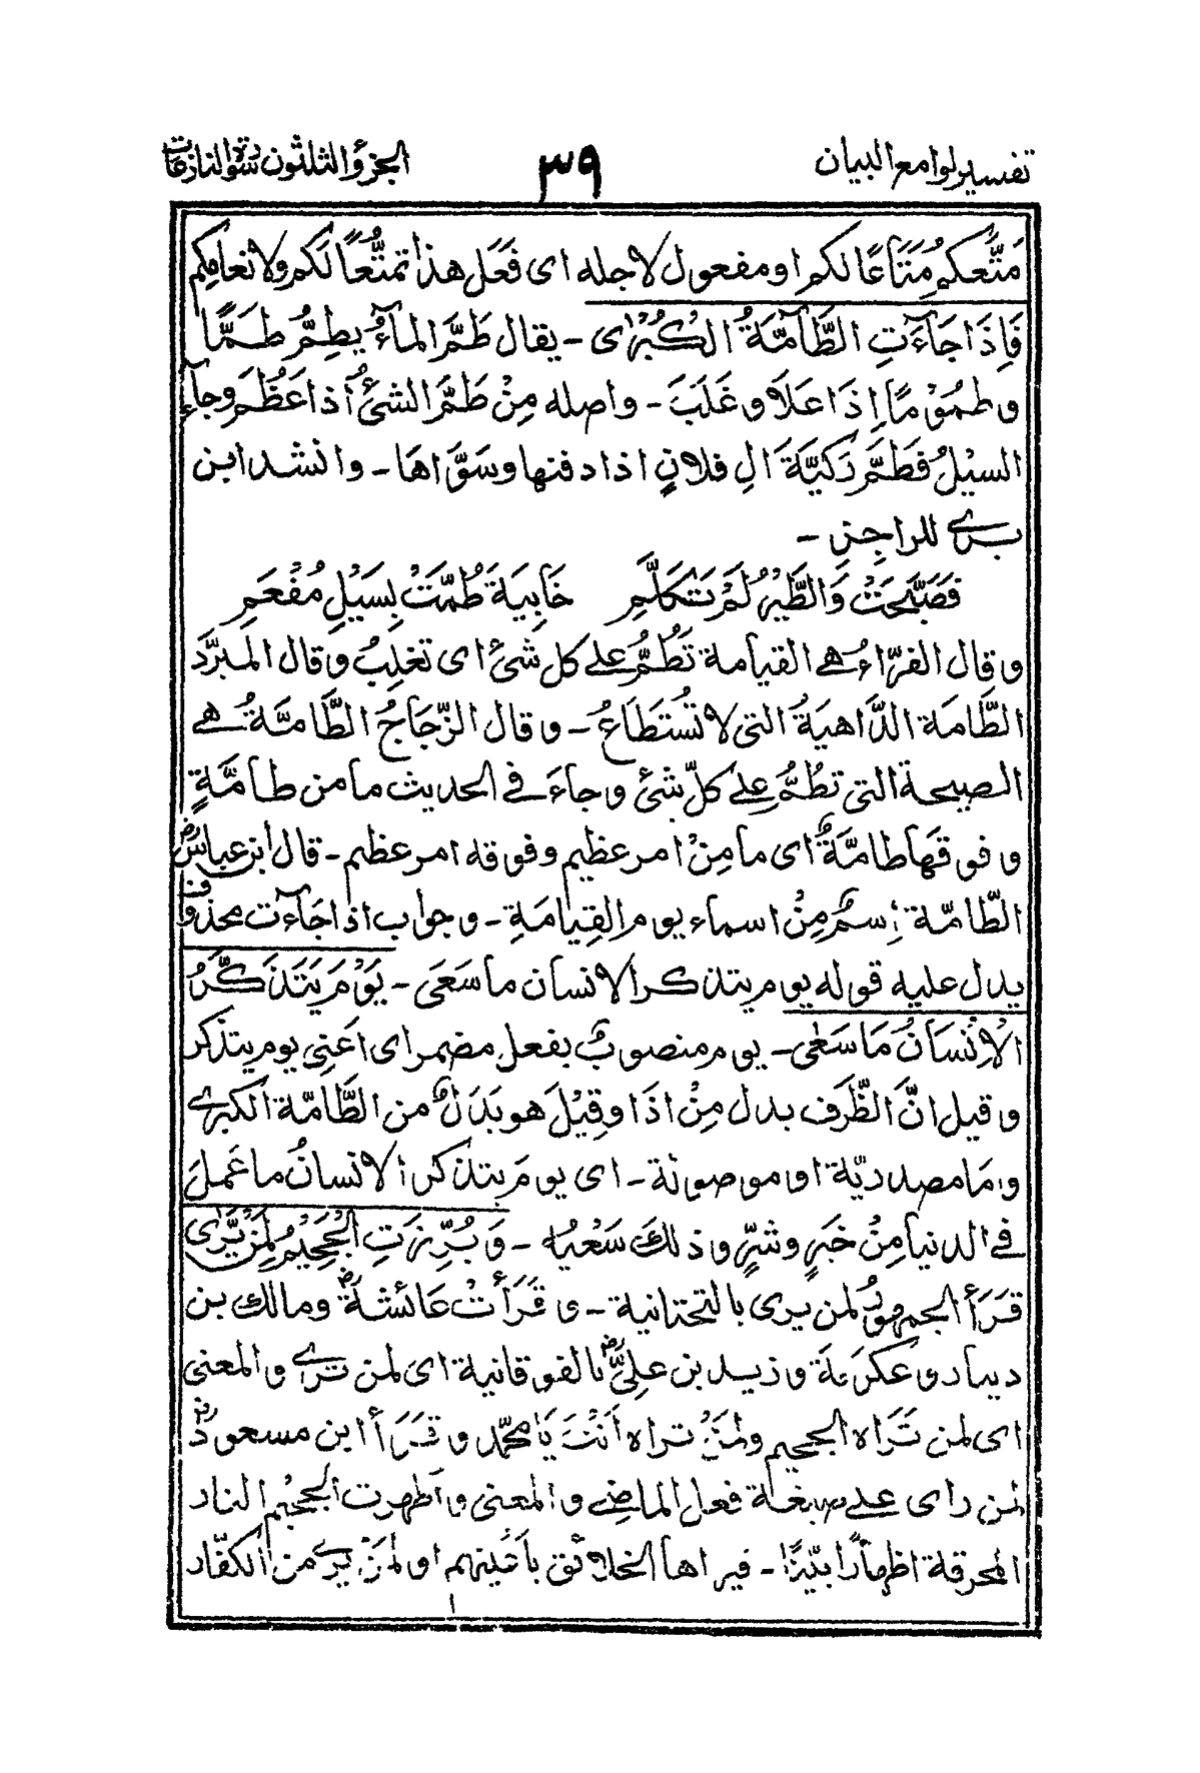 تفسیر لوامع البیان ٣٩ الجزؤ الثلثون سورة النازعات
مَتَّعَكُمْ مَتَاعًا لكم او مفعول لاجله ای فَعَل هذا تمتُّعًا لَكم ولانعامكم
فَاِذَا جَآءَتِ الطَّآمَّةُ الْكُبْرٰى - يقال طَمَّ المآءُ يطِمُّ طَمًّا
و طمُوْمًا اِذَا عَلَا و غَلَبَ - واصله مِنْ طَمَّ الشئُ اذا عَظُمَ وجآء
السيْلُ فَطَمَّ رَكيَّةَ اٰلِ فلانٍ اذا دفنها وسَوَّاها - وانشد ابن
بری للراجز -
فَصَبَّحَتْ وَالطَّيْرُ لَمْ تَكَلَّمِ خَابِيَةً طُمَّتْ بِسَيْلٍ مُفْعَمِ
و قال الفرّاءُ هی القيامة تَطُمُّ علی كل شئ ای تغلِبُ وقال المبرّد
الطَّامَة الدَّاهيَةُ التی لا تُسْتَطَاعُ - و قال الزّجَاجُ الطَّامَّةُ هی
الصيحة التی تطُمُّ علی كلّ شئ و جاءَ فی الحديث ما من طامَّةٍ
و فوقَها طامَّةٌ ای ما مِنْ امر عظيم وفوقه امر عظيم - قال ابن عباسؓ
الطَّامّة اِسمٌ مِنْ اسماء يوم القِيامَةِ - و جواب اذا جَآءت محذوف
يدل عليه قوله يوم يتذكر الانسان ما سَعَى - يَوْمَ يَتَذَكَّرُ
الْاِنْسَانُ مَا سَعٰى - يوم منصوبٌ بفعل مضمر ای اعنی يوم يتذكر
و قيل انَّ الظّرف بدل مِنْ اذَا و قِيْلَ هو بَدَلٌ من الطَّامّة الكبری
ومَا مصدريّة او موصولة - ای يومَ يتذكر الانسانُ ما عَمِلَ
فی الدنيا مِنْ خَيرٍ وشرٍّ وذلك سَعْيُه - وَ بُرِّزَتِ الْجَحِيْمُ لِمَنْ يَّرٰى
قَرَأ الجمهورُ لمن يری بالتحتانية - و قَرَأتْ عَائشةؓ ومالك بن
دينار و عكرَمَة و زيد بن علیؓ بالفوقانية ای لمن تری والمعنی
ای لمن تَرَاه الجحيم و لمَنْ تراه أنْتَ يَا محمّد و قَرَأ ابن مسعودؓ
لمن رای علی صيغة فعل الماضی والمعنی و اظهرت الجحيْم النار
المحرقة اظهارًا بيّنًا - فيراها الخلائق باَعْيُنهم او لمَنْ يری من الكفّار